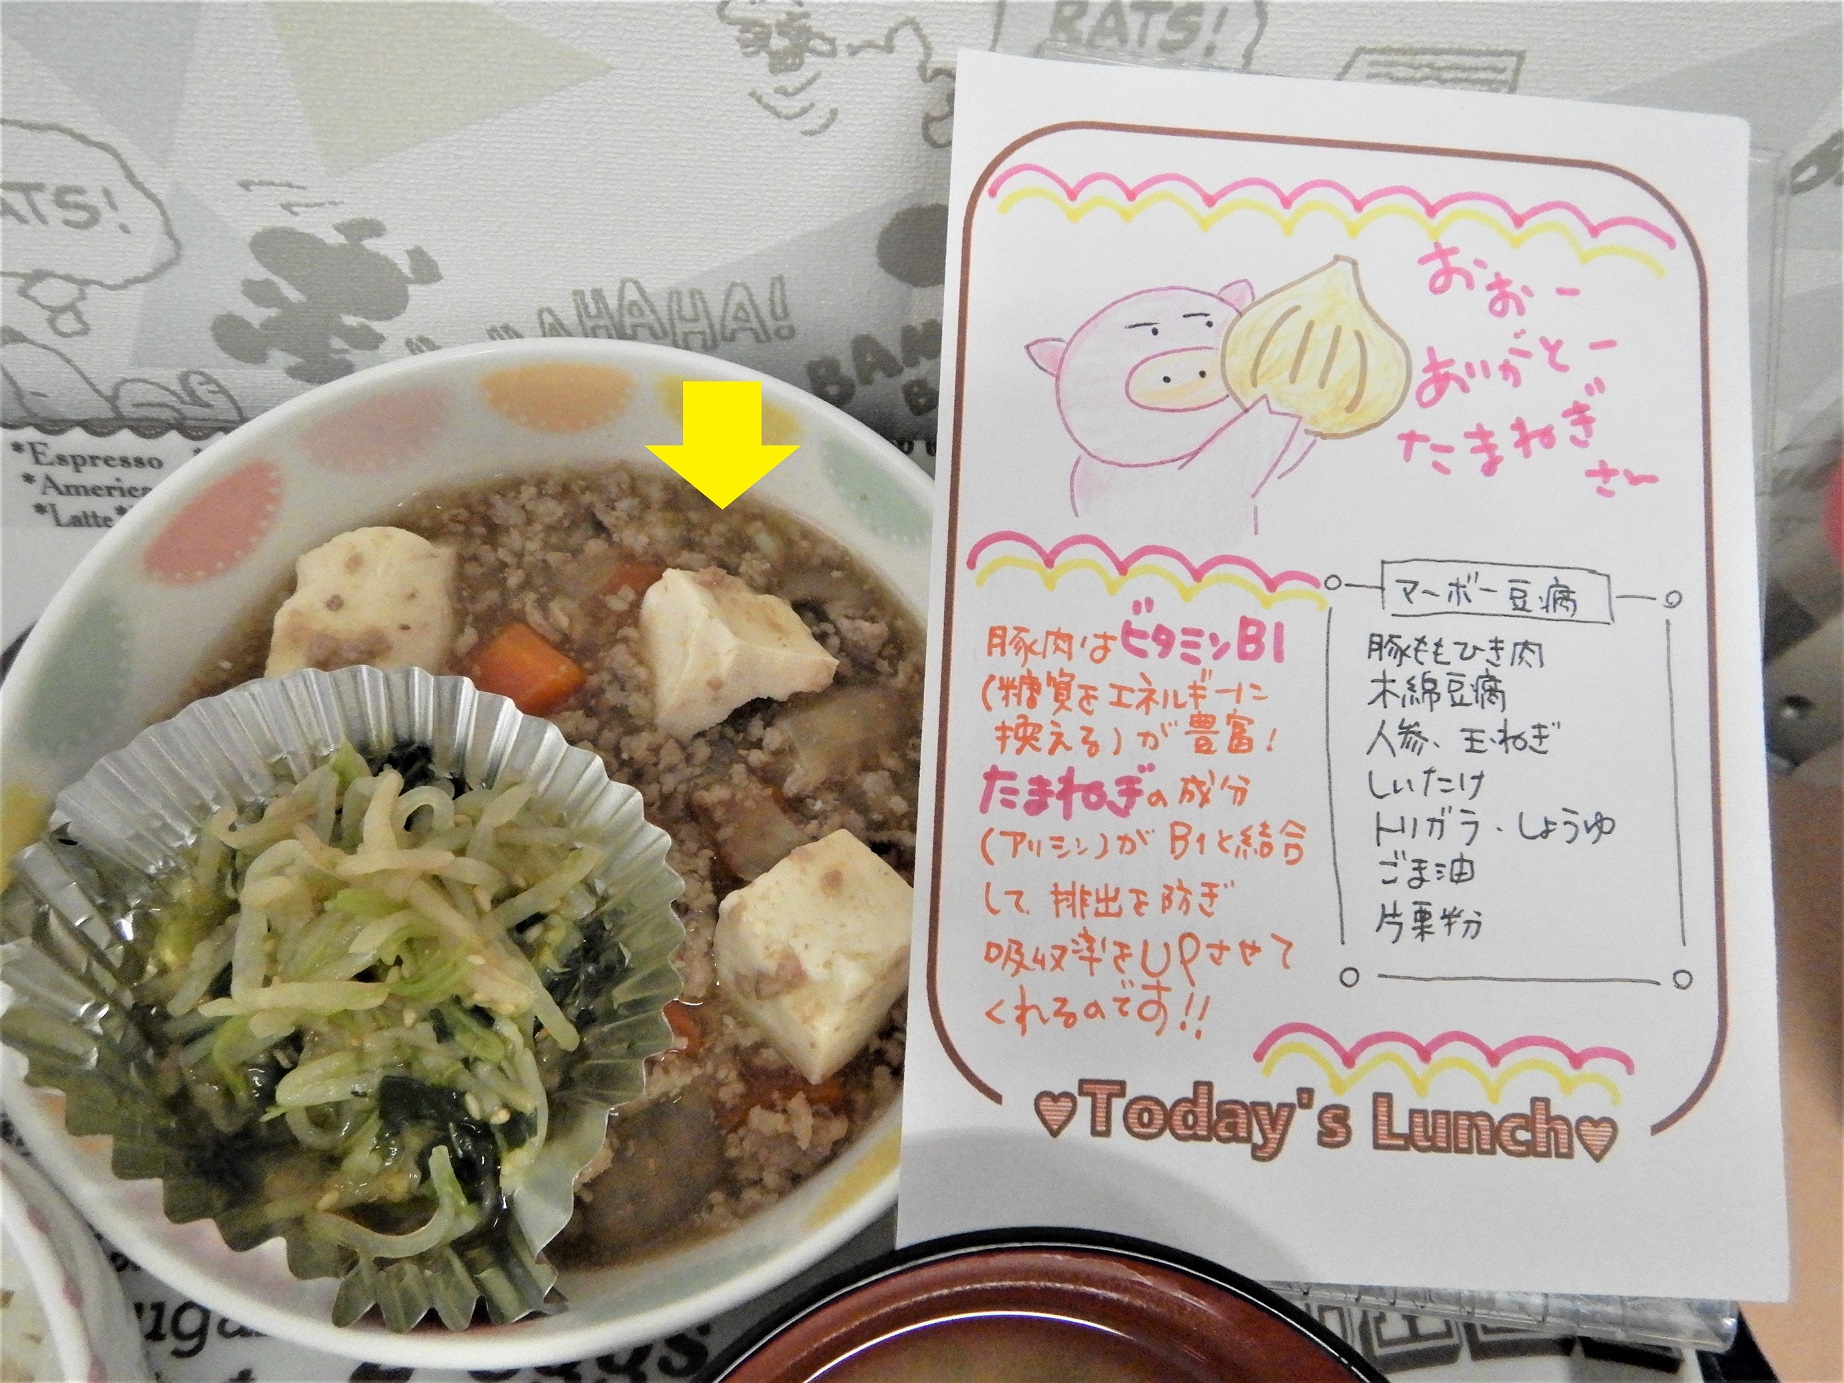 RATS!
ATS!
HAHAHA!
BAM
B
*Espresso
*America
*Latte*
おぉー
ありがとー
たまねぎ
さー
豚肉はビタミンB1
(糖質をエネルギーに
換える)が豊富!
たまねぎの成分
(アリシン)がB1と結合
して排出を防ぎ
吸収率をUPさせて
くれるのです!!
マーボー豆腐
豚ももひき肉
木綿豆腐
人参、玉ねぎ
しいたけ
トリガラ・しょうゆ
ごま油
片栗粉
♥Today's Lunch♥
ugar
Eggs